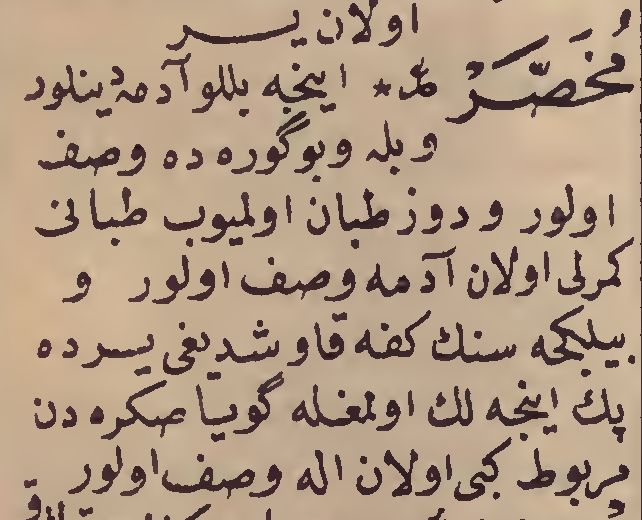 اولان یر
مُخَصَّرْ مد * اینجه بللو آدمه دینلور
و بله و بوگوره ده وصف
اولور و دوز طبان اولمیوب طبانی
کمرلی اولان آدمه وصف اولور و
بیلکجه سنك کفه قاوشدیغی یرده
پك اینجه لك اولمغله گویا صکره دن
مربوط کبی اولان اله وصف اولور